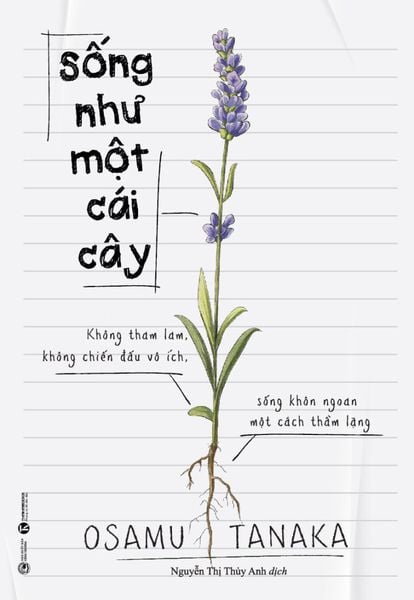 sống
như
một
cái
cây
Không tham lam,
không chiến đấu vô ích,
sống khôn ngoan
một cách thầm lặng
OSAMU TANAKA
Nguyễn Thị Thúy Anh dịch